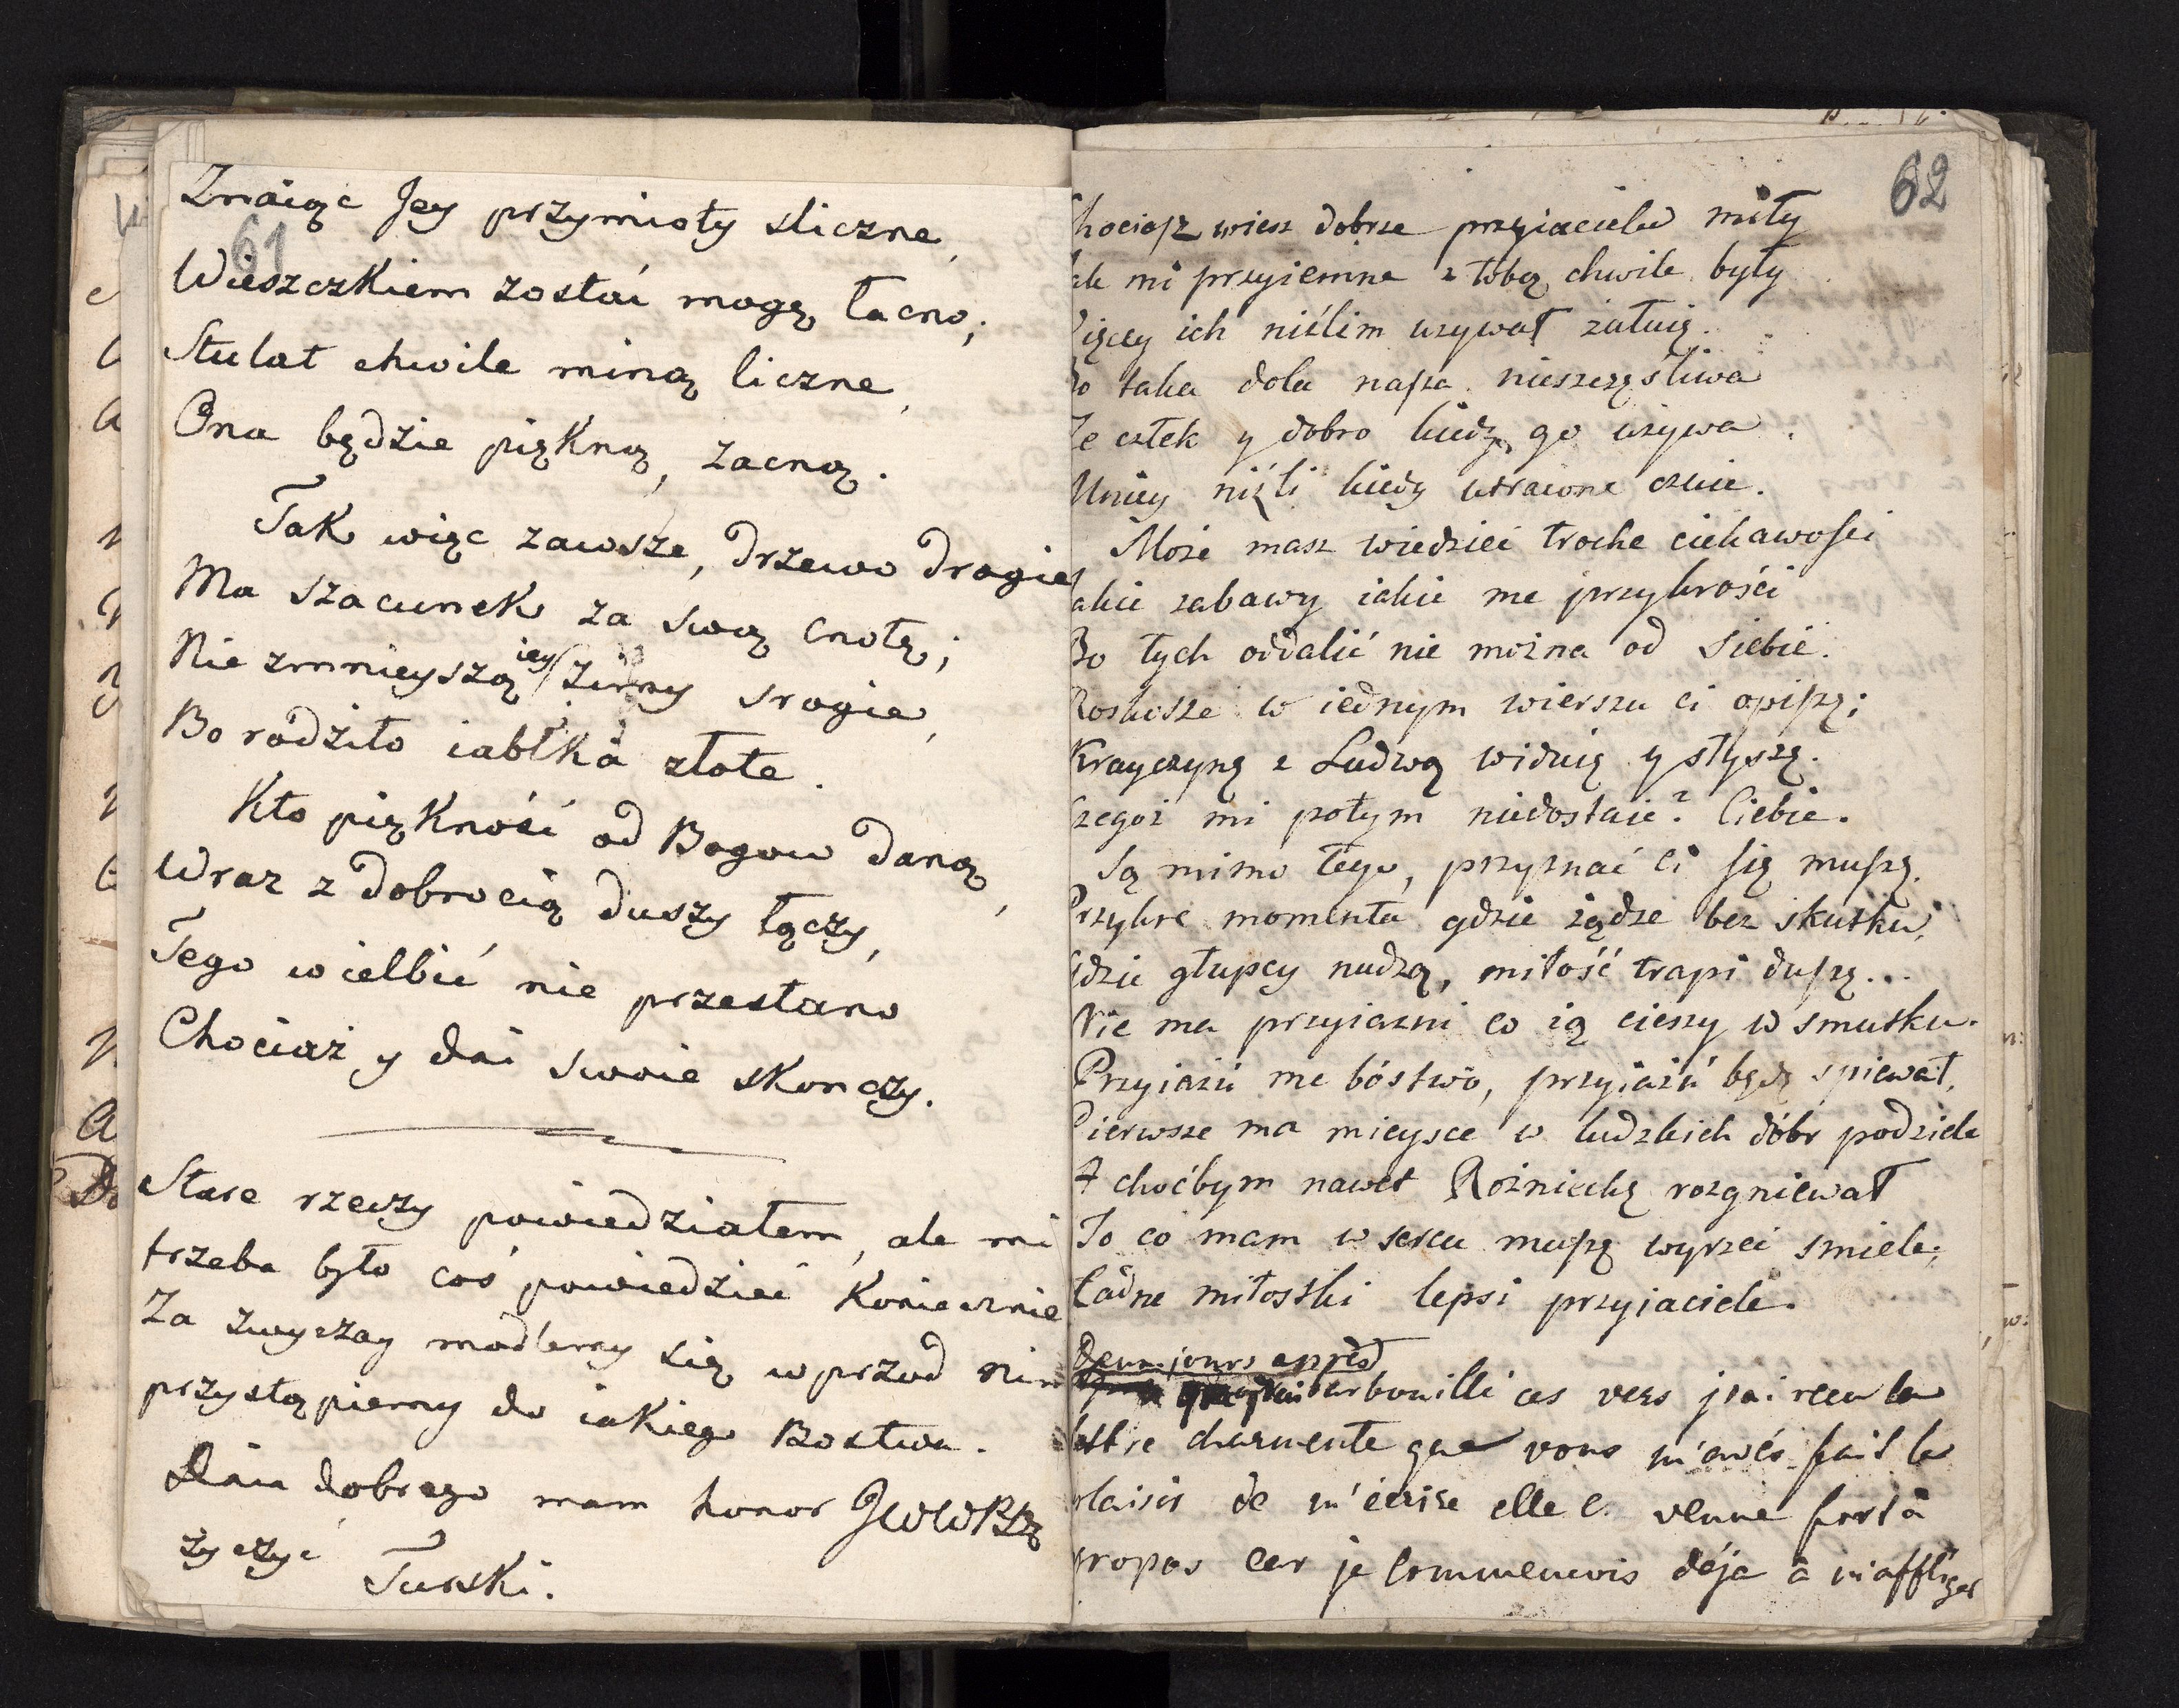 61
Znaiąc Jey przymioty sliczne,
Wieszczkiem zostać mogę łacno;
Stulat chwile miną liczne,
Ona będzie piękną, zacną.
Tak więc zawsze, drzewo drogie
Ma szacunek za swą cnotę;
Nie zmnieyszą iey zimy srogie,
Bo rodziło iabłka złote.
Kto piękność od Bogow daną,
Wraz z dobrocią duszy łączy,
Tego wielbić nie przestano
Chociaż y dni swoie skonczy.
Stare rzeczy powiedziałem, ale mi
trzeba było coś powiedzieć koniecznie
Za zwyczay modlemy się wprzod nim
przystąpiemy do iakiego Bostwa.
Dnia dobrego mam honor JWWPą
zyczyć
Turski.
62
Chociasz wiesz dobrze przyiacielu miły
Jak mi przyiemne z tobą chwile były
Więcey ich niślim uzywał załuię.
Bo taka dola nasza nieszczęśliwa
Ze człek y dobro kiedy go uzywa
Mniey niźli kiedy utracone czuie.
Może masz wiedzieć troche ciekawości
Jakie zabawy iakie me przykrości
Bo tych oddalić nie można od siebie.
Roskosze w iednym wierszu ci opiszę;
Krayczynę z Ludwą widuię y słyszę.
Czegoż mi potym niedostaie? Ciebie.
Są mimo tego, przyznać ci się muszę.
Przykre momenta gdzie żądze bez skutku,
Gdzie głupcy nudzą, miłość trapi duszę...
Nie ma przyiazni co ią cieszy w smutku.
Przyiaźń me bóstwo, przyiaźń będę spiewał,
Pierwsze ma mieysce w ludzkich dóbr podziele
A choćbym nawet Rożniecką rozgniewał
To co mam w sercu muszę wyrzec smiele;
Ładne miłostki lepsi przyjaciele.
Deux jours après
barbouillé ces vers j'ai recu la
lettre charmente que vous m'avés fait le
plaisir de m'écrire elle e. venue fort à
propos car je commencois déja à m'affliger